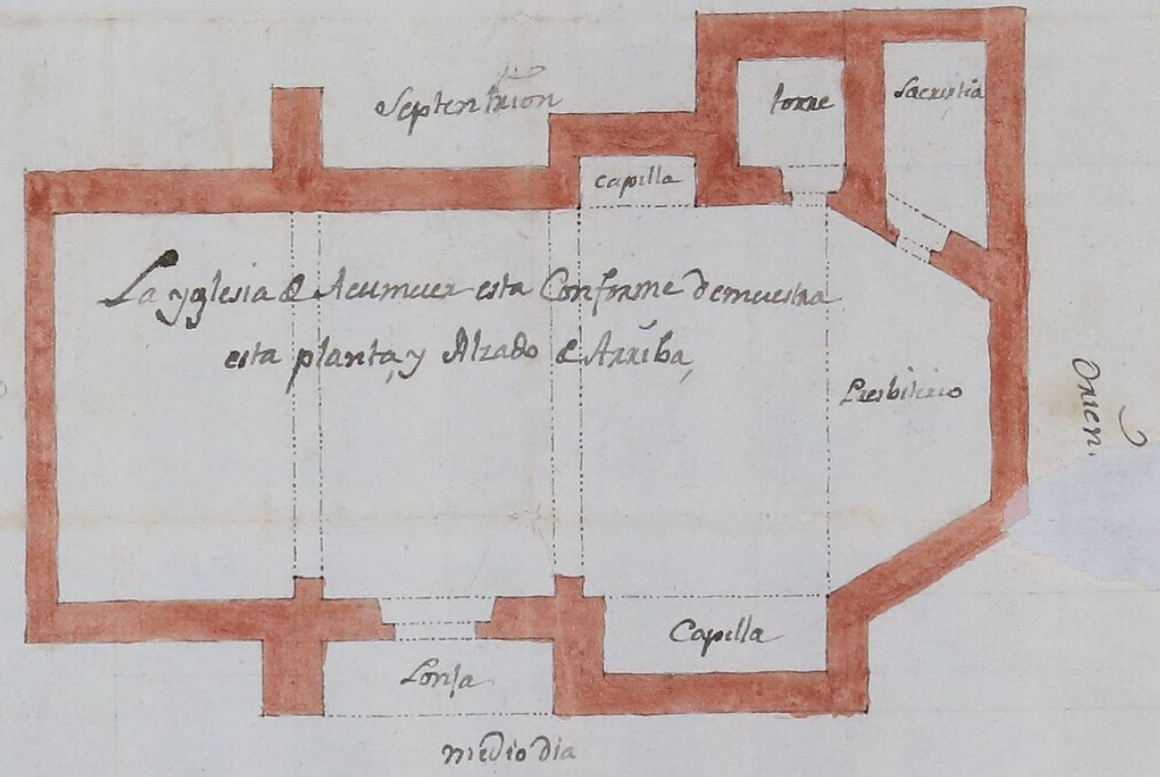 Septentrion
torre
Sacristia
capilla
La yglesia de Acumuer esta Conforme demuestra
esta planta, y Alzado de Arriba,
Presbiterio
Orien.
Capilla
Lonja
medio dia